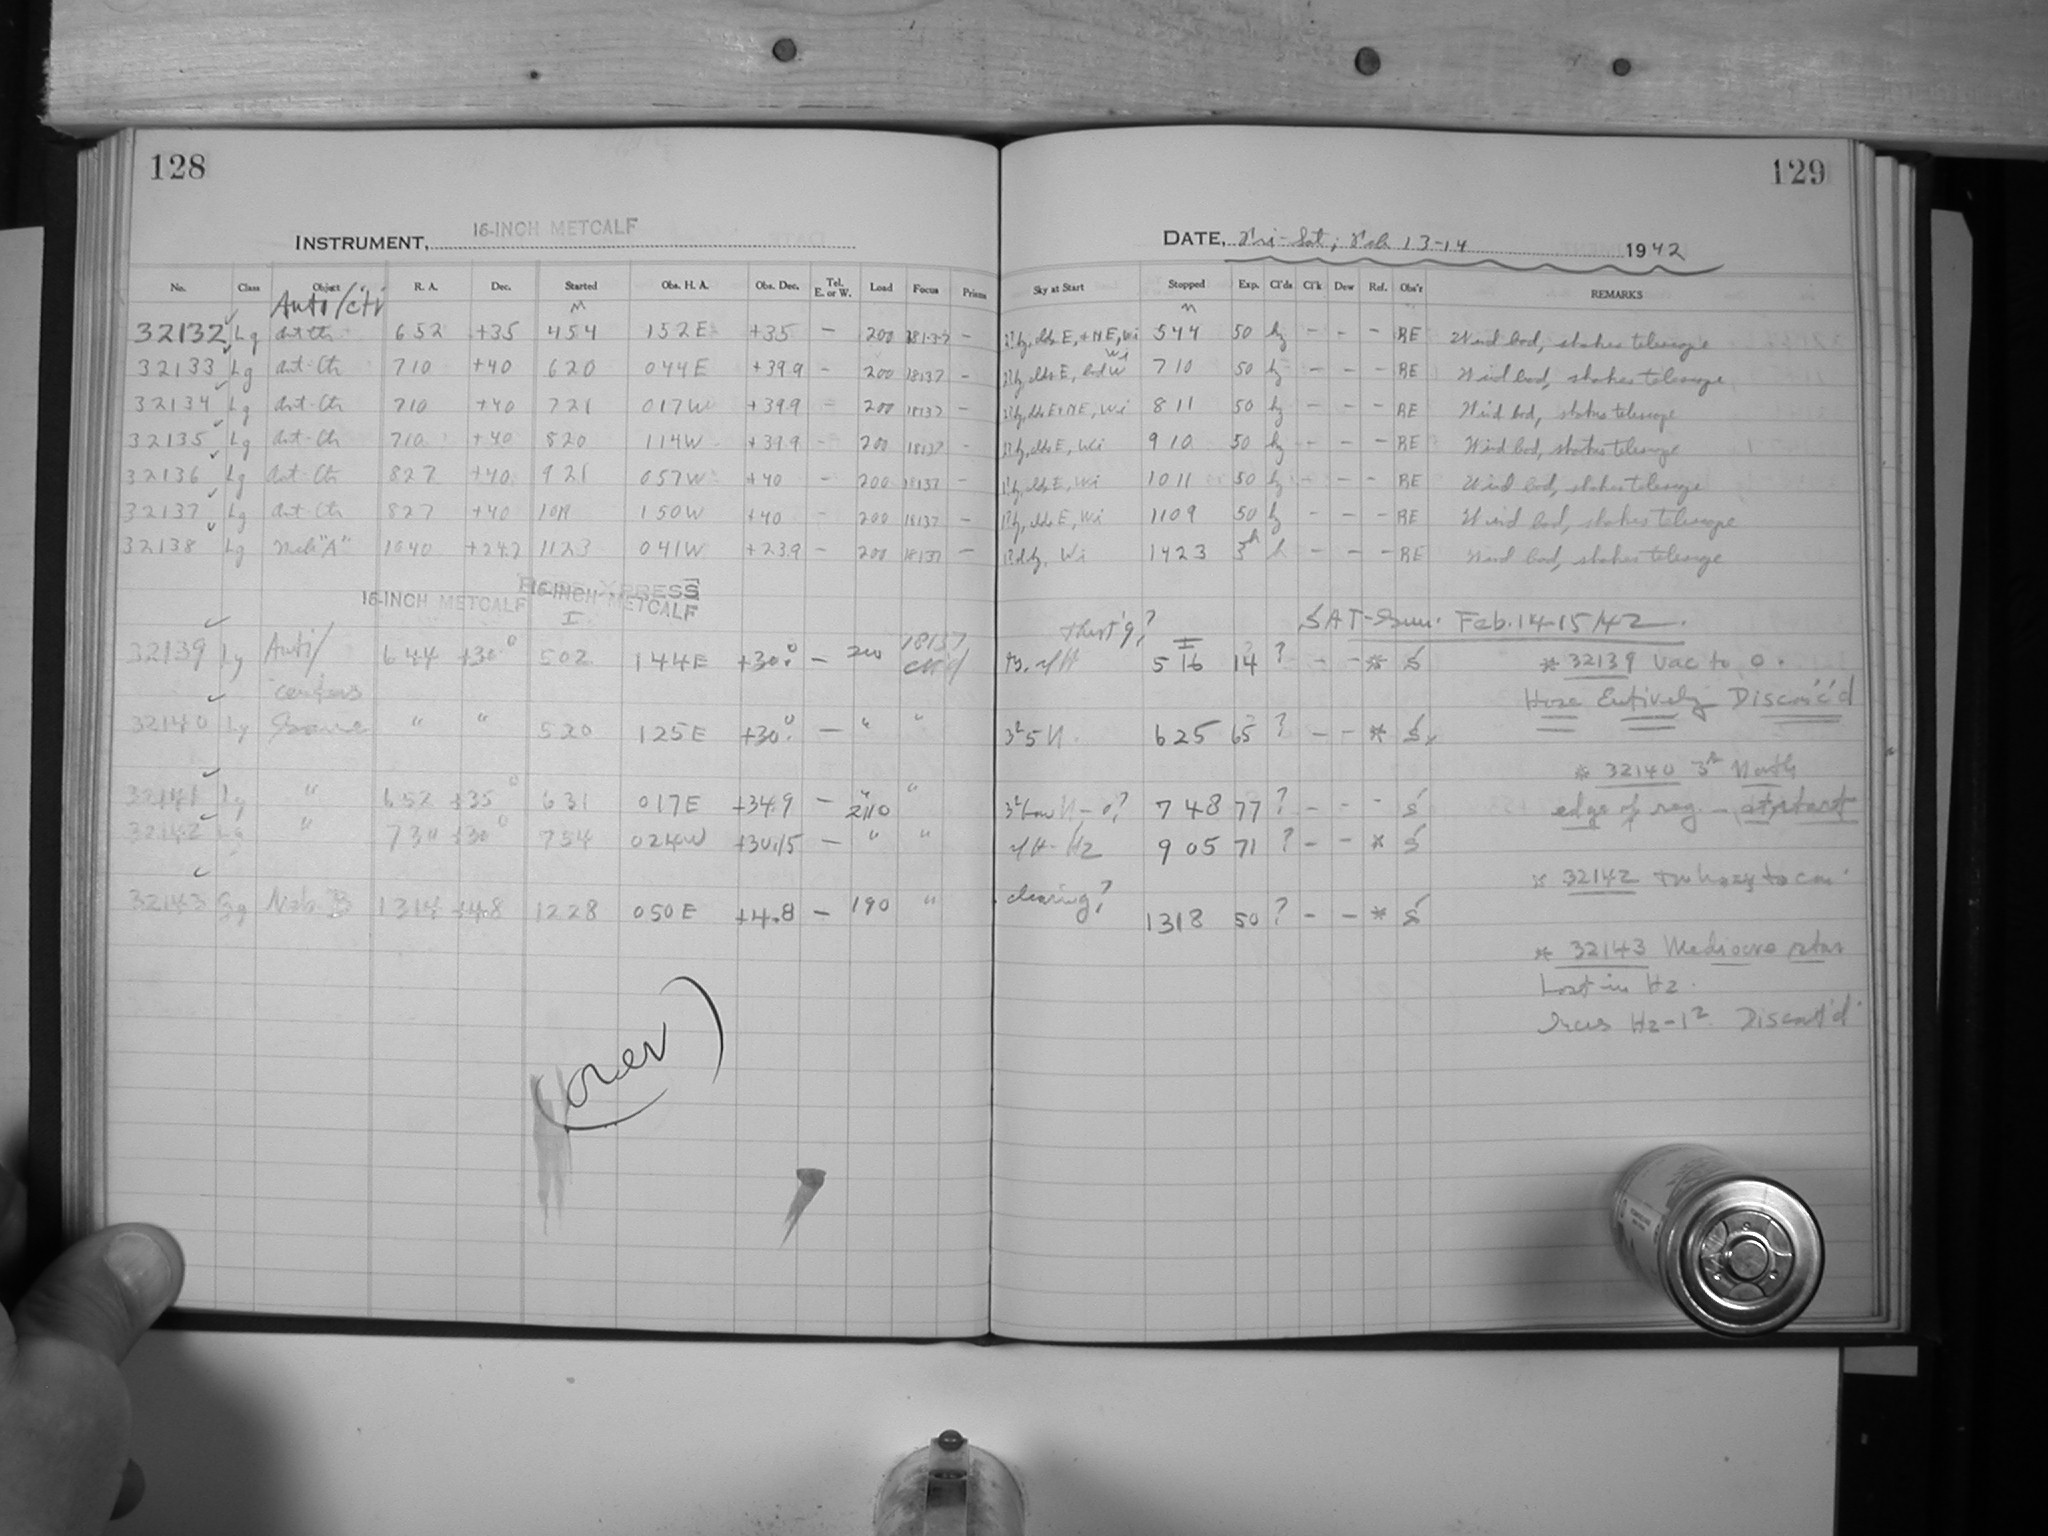 128
129
INSTRUMENT, 16-INCH METCALF
DATE, Fri-Sat, Feb 13-14 1942
No. Class Object R. A. Dec. Started Obs. H. A. Obs. Dec. Tel. E. or W. Load Focus Prism Sky at Start Stopped Exp. Cl'ds Cl'k Dew Ref. Obs'r REMARKS
Anti/ctr
32132 Lg Ant-Ctr 652 +35 454 152E +35 – 200 18137 – E, + NE, Wi 544 50 hz – – – RE Wind bad, shakes telescope
32133 Lg Ant-Ctr 710 +40 620 044E +39.9 – 200 18137 – 710 50 hz – – – RE Wind bad, shakes telescope
32134 Lg Ant-Ctr 710 +40 721 017W +39.9 – 200 18137 – 811 50 hz – – – RE Wind bad, shakes telescope
32135 Lg Ant-Ctr 710 +40 820 114W +39.9 – 200 18137 – E, Wi 910 50 hz – – – RE Wind bad, shakes telescope
32136 Lg Ant-Ctr 827 +40 921 057W +40 – 200 18137 – E, Wi 1011 50 hz – – – RE Wind bad, shakes telescope
32137 Lg Ant-Ctr 827 +40 1019 150W +40 – 200 18137 – E, Wi 1109 50 hz – – – RE Wind bad, shakes telescope
32138 Lg Neb "A" 1040 +24.2 1123 041W +23.9 – 200 18137 – Wi 1423 3h h – – – RE Wind bad, shakes telescope
16-INCH METCALF 16-INCH METCALF
SAT-Sun. Feb. 14-15/42.
32139 Lg Anti/ 644 +30.0 502 144E +30.0 – 200 18137 516 14 ? – – * S * 32139 Vac to 0.
centers
Hose Entirely Discon'c'd
32140 Lg Same " " 520 125E +30.0 – " " 625 65 ? – – * S
* 32140 3h North
32141 Lg " 652 +35 631 017E +34.9 – 200 " 748 77 ? – – – S edge of reg. – at start
32142 Lg " 730 +30 754 024W +30.15 – " " Hz 905 71 ? – – * S
* 32142 too hazy to con'
32143 Sg Neb. B 1314 +4.8 1228 050E +4.8 – 190 " clearing? 1318 50 ? – – * S
* 32143 Mediocre star
Lost in Hz.
Hz-1² Discont'd
(over)